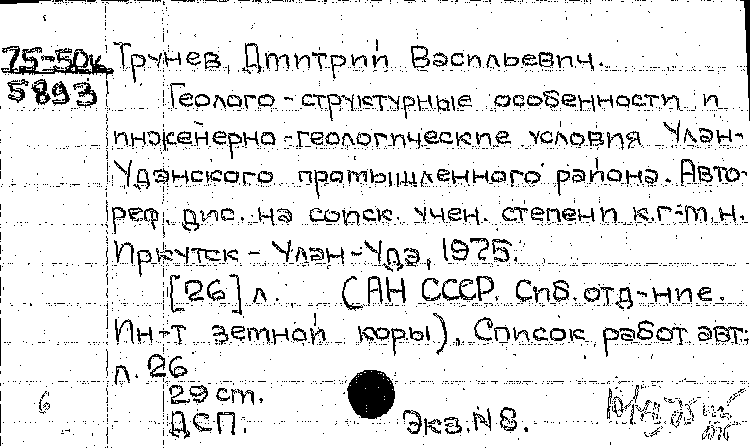 75-50к Трунев, Дмитрий Васильевич.
5893
Геолого-структурные особенности и
инженерно-геологические условия Улан-
Удэнского промышленного района. Авто-
реф. дис. на соиск. учен. степени к.г-м.н.
Иркутск - Улан-Удэ, 1975.
[26] л. (АН СССР. Сиб. отд-ние.
Ин-т земной коры). Список работ авт.:
л. 26
29 ст.
6
ДСП. Экз. N 8.